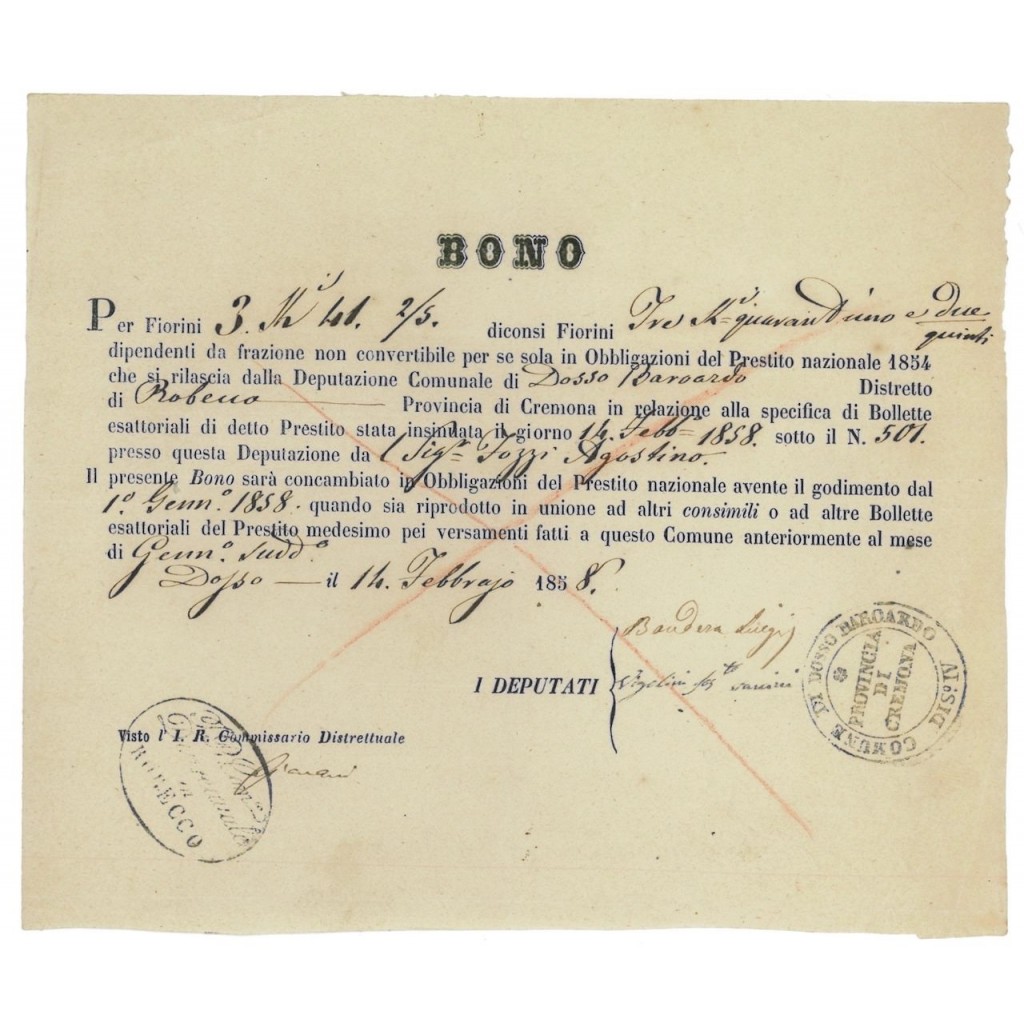 BONO
Per Fiorini 3. Kⁱ 41. 2/5. diconsi Fiorini Tre Kⁱ quarantuno e due quinti
dipendenti da frazione non convertibile per se sola in Obbligazioni del Prestito nazionale 1854
che si rilascia dalla Deputazione Comunale di Dosso Baroardo Distretto
di Robecco Provincia di Cremona in relazione alla specifica di Bollette
esattoriali di detto Prestito stata insinuata il giorno 14. Febbº 1858. sotto il N. 501.
presso questa Deputazione da Sigʳ Tozzi Agostino.
Il presente Bono sarà concambiato in Obbligazioni del Prestito nazionale avente il godimento dal
1.º Gennº 1858. quando sia riprodotto in unione ad altri consimili o ad altre Bollette
esattoriali del Prestito medesimo pei versamenti fatti a questo Comune anteriormente al mese
di Gennº suddº
Dosso il 14. Febbrajo 1858.
Bandera Luigi
I DEPUTATI
COMUNE DI DOSSO BAROARDO
PROVINCIA
DI
CREMONA
Visto l'I. R. Commissario Distrettuale
in
ROBECCO